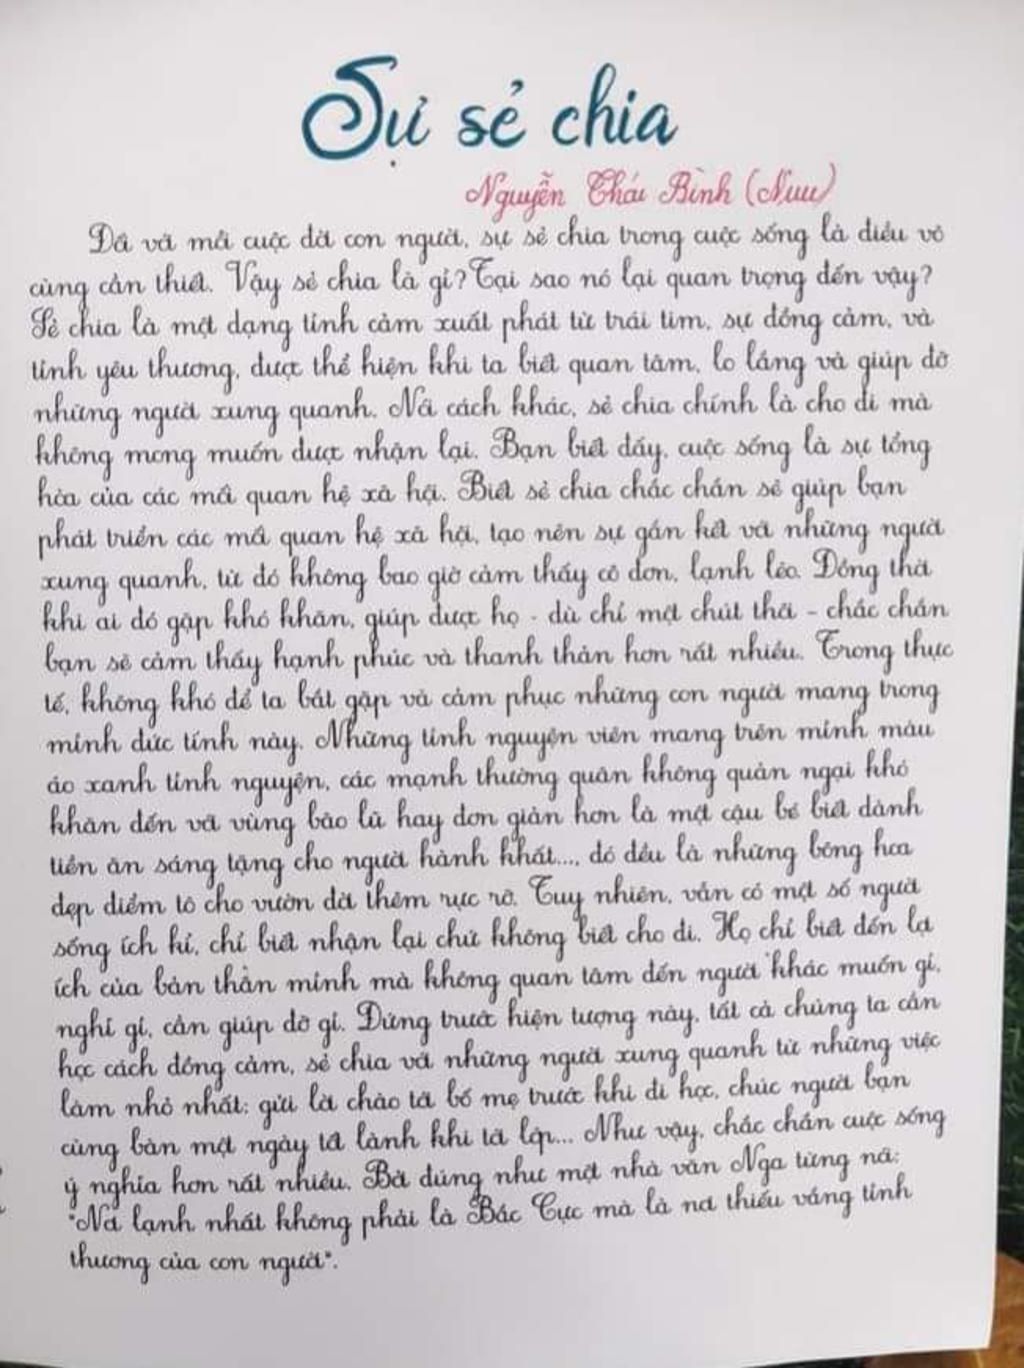 Sự sẻ chia
Nguyễn Thái Bình (Nuu)
Đối với mỗi cuộc đời con người, sự sẻ chia trong cuộc sống là điều vô
cùng cần thiết. Vậy sẻ chia là gì? Tại sao nó lại quan trọng đến vậy?
Sẻ chia là một dạng tình cảm xuất phát từ trái tim, sự đồng cảm, và
tình yêu thương, được thể hiện khi ta biết quan tâm, lo lắng và giúp đỡ
những người xung quanh. Nói cách khác, sẻ chia chính là cho đi mà
không mong muốn được nhận lại. Bạn biết đấy, cuộc sống là sự tổng
hòa của các mối quan hệ xã hội. Biết sẻ chia chắc chắn sẽ giúp bạn
phát triển các mối quan hệ xã hội, tạo nên sự gắn kết với những người
xung quanh, từ đó không bao giờ cảm thấy cô đơn, lạnh lẽo. Đồng thời
khi ai đó gặp khó khăn, giúp được họ - dù chỉ một chút thôi - chắc chắn
bạn sẽ cảm thấy hạnh phúc và thanh thản hơn rất nhiều. Trong thực
tế, không khó để ta bắt gặp và cảm phục những con người mang trong
mình đức tính này. Những tình nguyện viên mang trên mình màu
áo xanh tình nguyện, các mạnh thường quân không quản ngại khó
khăn đến với vùng bão lũ hay đơn giản hơn là một cậu bé biết dành
tiền ăn sáng tặng cho người hành khất..., đó đều là những bông hoa
đẹp điểm tô cho vườn đời thêm rực rỡ. Tuy nhiên, vẫn có một số người
sống ích kỉ, chỉ biết nhận lại chứ không biết cho đi. Họ chỉ biết đến lợi
ích của bản thân mình mà không quan tâm đến người khác muốn gì,
nghĩ gì, cần giúp đỡ gì. Đứng trước hiện tượng này, tất cả chúng ta cần
học cách đồng cảm, sẻ chia với những người xung quanh từ những việc
làm nhỏ nhất: gửi lời chào tới bố mẹ trước khi đi học, chúc người bạn
cùng bàn một ngày tốt lành khi tới lớp... Như vậy, chắc chắn cuộc sống
ý nghĩa hơn rất nhiều. Bởi đúng như một nhà văn Nga từng nói:
"Nơi lạnh nhất không phải là Bắc Cực mà là nơi thiếu vắng tình
thương của con người".